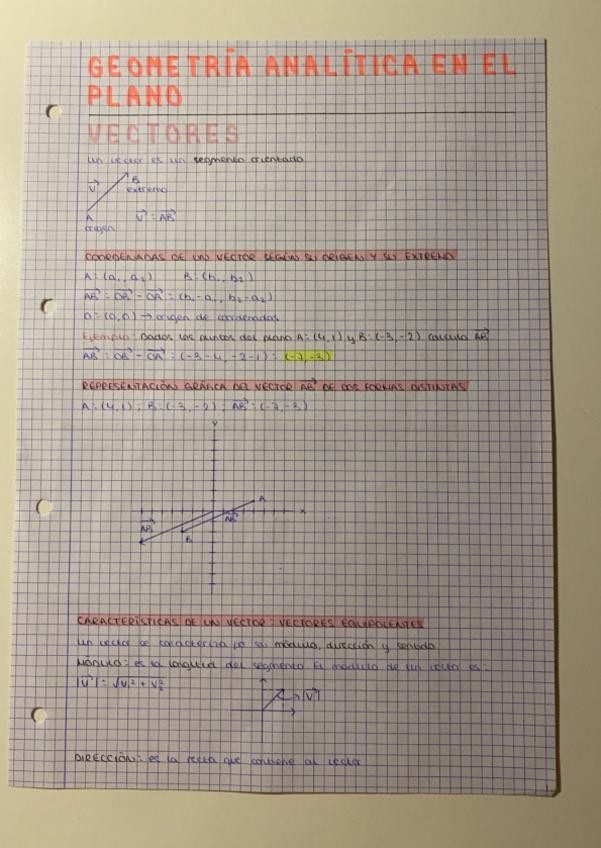 GEOMETRÍA ANALÍTICA EN EL
PLANO
VECTORES
un vector es un segmento orientado
B
extremo
V⃗
A
origen
V⃗ = AB⃗
COORDENADAS DE UN VECTOR SEGÚN SU ORIGEN Y SU EXTREMO
A=(a₁, a₂) B=(b₁, b₂)
AB⃗ = OB⃗ - OA⃗ = (b₁-a₁, b₂-a₂)
O=(0,0) → origen de coordenadas
Ejemplo: Dados los puntos del plano A=(4,1) y B=(-3,-2) calcula AB⃗
AB⃗ = OB⃗ - OA⃗ = (-3-4, -2-1) = (-7,-3)
REPRESENTACIÓN GRÁFICA DEL VECTOR AB⃗ DE DOS FORMAS DISTINTAS
A=(4,1); B=(-3,-2); AB⃗=(-7,-3)
Y
A
X
AB⃗
AB⃗
B
CARACTERÍSTICAS DE UN VECTOR: VECTORES EQUIPOLENTES
Un vector se caracteriza por su módulo, dirección y sentido
MÓDULO: es la longitud del segmento. El módulo de un vector es:
|V⃗| = √V₁² + V₂²
|V⃗|
DIRECCIÓN: es la recta que contiene al vector